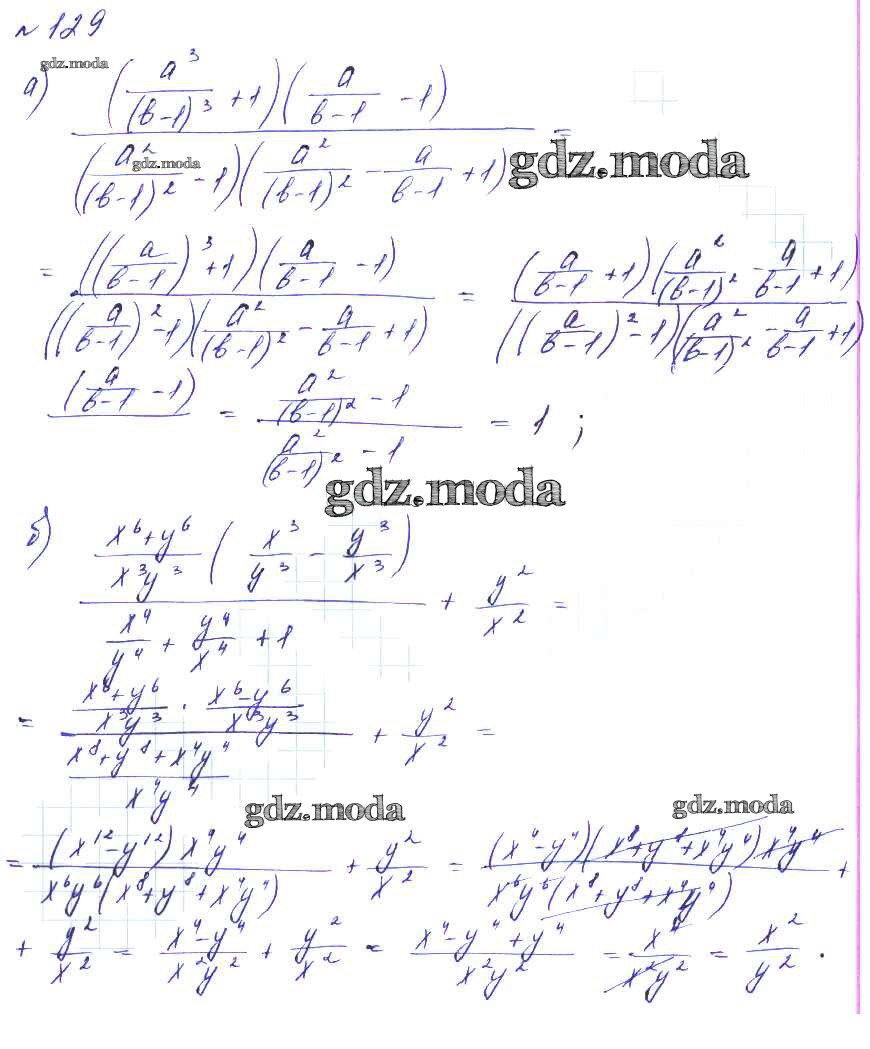 № 129
gdz.moda
а) ((a³/(b-1)³ + 1)(a/(b-1) - 1)) / ((a²/(b-1)² - 1)(a²/(b-1)² - a/(b-1) + 1)) =
gdz.moda
gdz.moda
= (((a/(b-1))³ + 1)(a/(b-1) - 1)) / (((a/(b-1))² - 1)(a²/(b-1)² - a/(b-1) + 1)) = ((a/(b-1) + 1)(a²/(b-1)² - a/(b-1) + 1)) / (((a/(b-1))² - 1)(a²/(b-1)² - a/(b-1) + 1))
(a/(b-1) - 1) = (a²/(b-1)² - 1) / (a²/(b-1)² - 1) = 1 ;
gdz.moda
б) ((x⁶+y⁶)/(x³y³) (x³/y³ - y³/x³)) / (x⁴/y⁴ + y⁴/x⁴ + 1) + y²/x² =
= ((x⁶+y⁶)/(x³y³) · (x⁶-y⁶)/(x³y³)) / ((x⁸+y⁸+x⁴y⁴)/(x⁴y⁴)) + y²/x² =
gdz.moda
gdz.moda
= ((x¹²-y¹²) x⁴y⁴) / (x⁶y⁶(x⁸+y⁸+x⁴y⁴)) + y²/x² = ((x⁴-y⁴)(x⁸+y⁸+x⁴y⁴)x⁴y⁴) / (x⁶y⁶(x⁸+y⁸+x⁴y⁴)) +
+ y²/x² = (x⁴-y⁴)/(x²y²) + y²/x² = (x⁴-y⁴+y⁴)/(x²y²) = x⁴/(x²y²) = x²/y² .